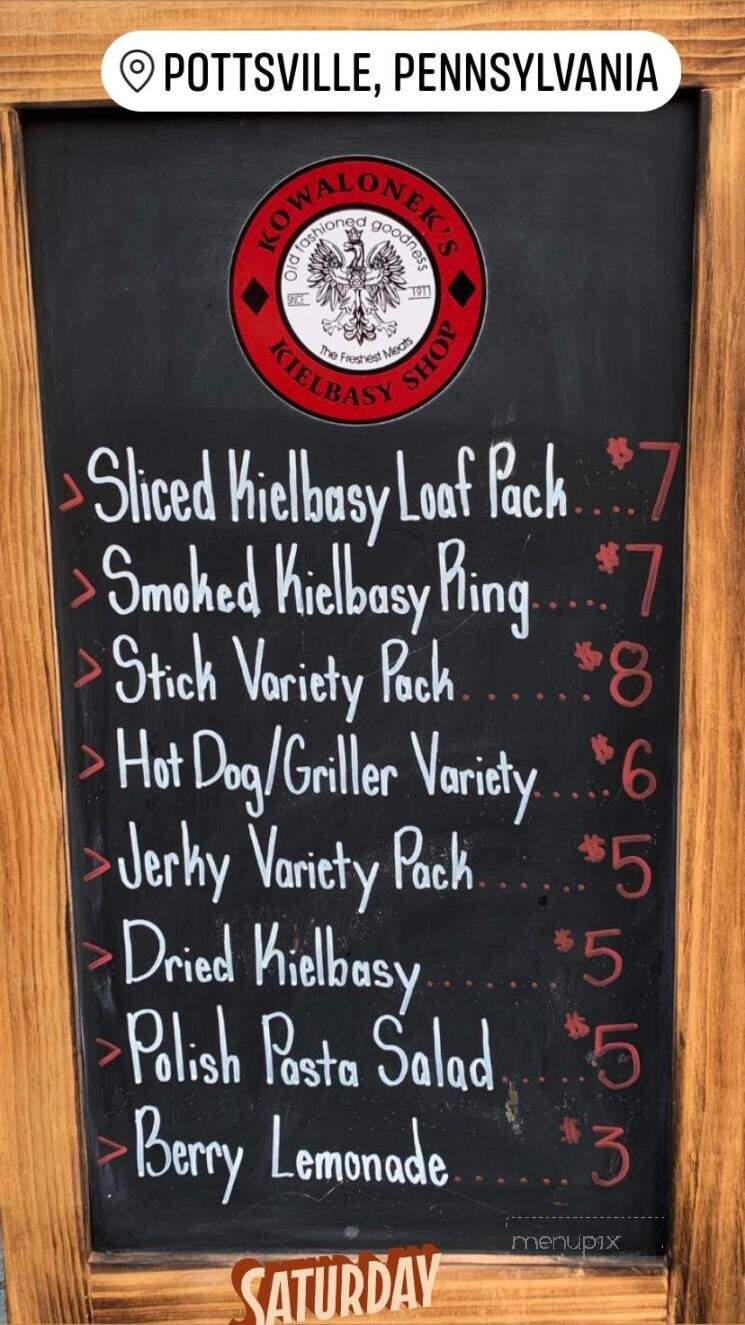 POTTSVILLE, PENNSYLVANIA
KOWALONEK'S
Old fashioned goodness
SINCE 1911
The Freshest Meats
KIELBASY SHOP
> Sliced Kielbasy Loaf Pack.... $7
> Smoked Kielbasy Ring..... $7
> Stick Variety Pack....... $8
> Hot Dog/Griller Variety..... $6
> Jerky Variety Pack...... $5
> Dried Kielbasy....... $5
> Polish Pasta Salad..... $5
> Berry Lemonade...... $3
menupix
SATURDAY